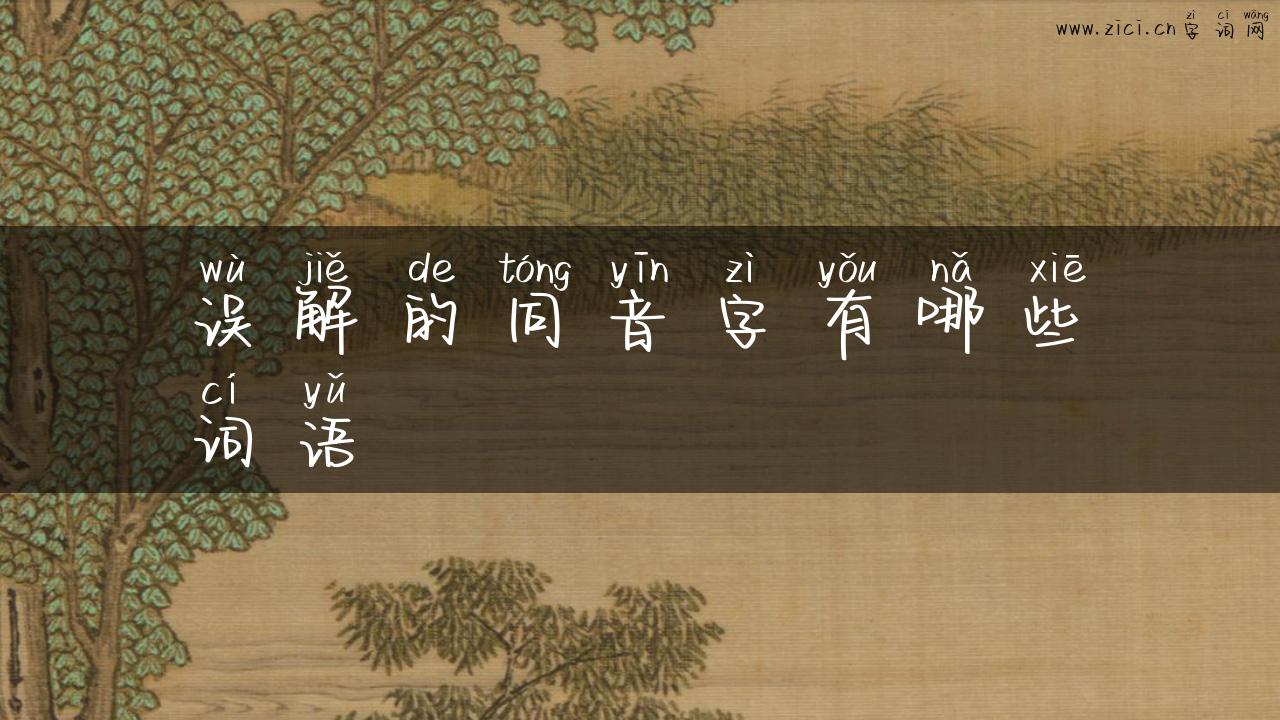 zì cí wǎng
www.zici.cn字词网
wù jiě de tóng yīn zì yǒu nǎ xiē
误解的同音字有哪些
cí yǔ
词语